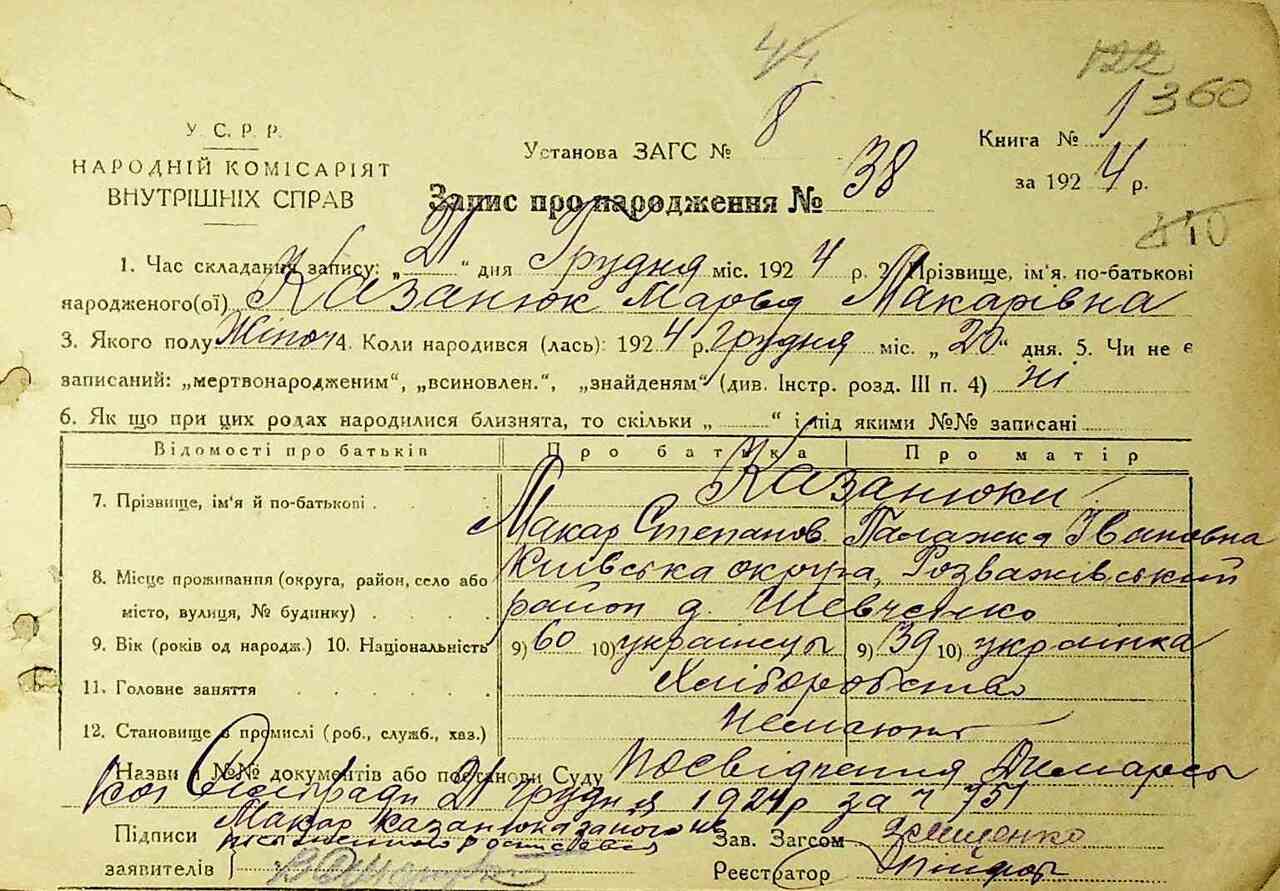 44
122
360
У. С. Р. Р.
НАРОДНІЙ КОМІСАРІЯТ
ВНУТРІШНІХ СПРАВ
Установа ЗАГС № 8
Книга № 1
за 1924 р.
Запис про народження № 38
110
1. Час складання запису: „21“ дня Грудня міс. 1924 р. 2. Прізвище, ім'я, по-батькові
народженого(ої) Казанюк Марья Макарівна
3. Якого полу Жіноч 4. Коли народився (лась): 1924 р. грудня міс. „20“ дня. 5. Чи не є
записаний: „мертвонародженим“, „всиновлен.“, „знайденям“ (див. Інстр. розд. III п. 4) ні
6. Як що при цих родах народилися близнята, то скільки „ “ і під якими №№ записані
Відомості про батьків Про батька Про матір
7. Прізвище, ім'я й по-батькові Казанюки
Макар Степанов. Палажка Івановна
8. Місце проживання (округа, район, село або Київська округа, Розважівський
місто, вулиця, № будинку) район д. Шевченко
9. Вік (років од народж.) 10. Національність 9) 60 10) українець 9) 39 10) українка
11. Головне заняття Хліборобство
12. Становище в промислі (роб., служб., хаз.) Немают
Назви і №№ документів або постанови Суду посвідчення
Сільради 21 грудня 1924 р за ч 751
Підписи Макар Казанюк а за його не
заявителів
Зав. Загсом
Реєстратор